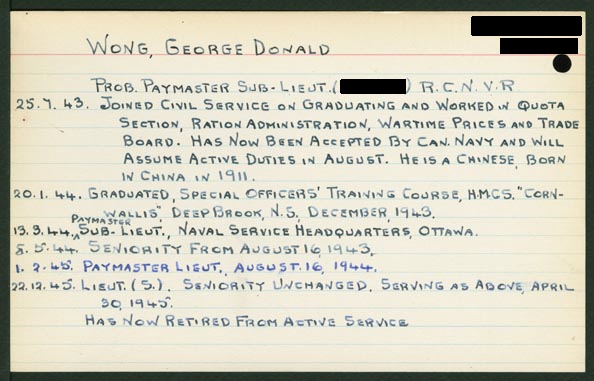 WONG, GEORGE DONALD
PROB. PAYMASTER SUB-LIEUT. ( ) R.C.N.V.R
25.7.43. JOINED CIVIL SERVICE ON GRADUATING AND WORKED IN QUOTA
SECTION, RATION ADMINISTRATION, WARTIME PRICES AND TRADE
BOARD. HAS NOW BEEN ACCEPTED BY CAN. NAVY AND WILL
ASSUME ACTIVE DUTIES IN AUGUST. HE IS A CHINESE, BORN
IN CHINA IN 1911.
20.1.44. GRADUATED, SPECIAL OFFICERS' TRAINING COURSE, H.M.C.S. "CORN-
WALLIS", DEEP BROOK, N.S., DECEMBER, 1943.
13.3.44. PAYMASTER SUB-LIEUT., NAVAL SERVICE HEADQUARTERS, OTTAWA.
8.5.44. SENIORITY FROM AUGUST 16, 1943.
1.2.45. PAYMASTER LIEUT., AUGUST 16, 1944.
22.12.45. LIEUT. (S.). SENIORITY UNCHANGED. SERVING AS ABOVE, APRIL
30, 1945.
HAS NOW RETIRED FROM ACTIVE SERVICE